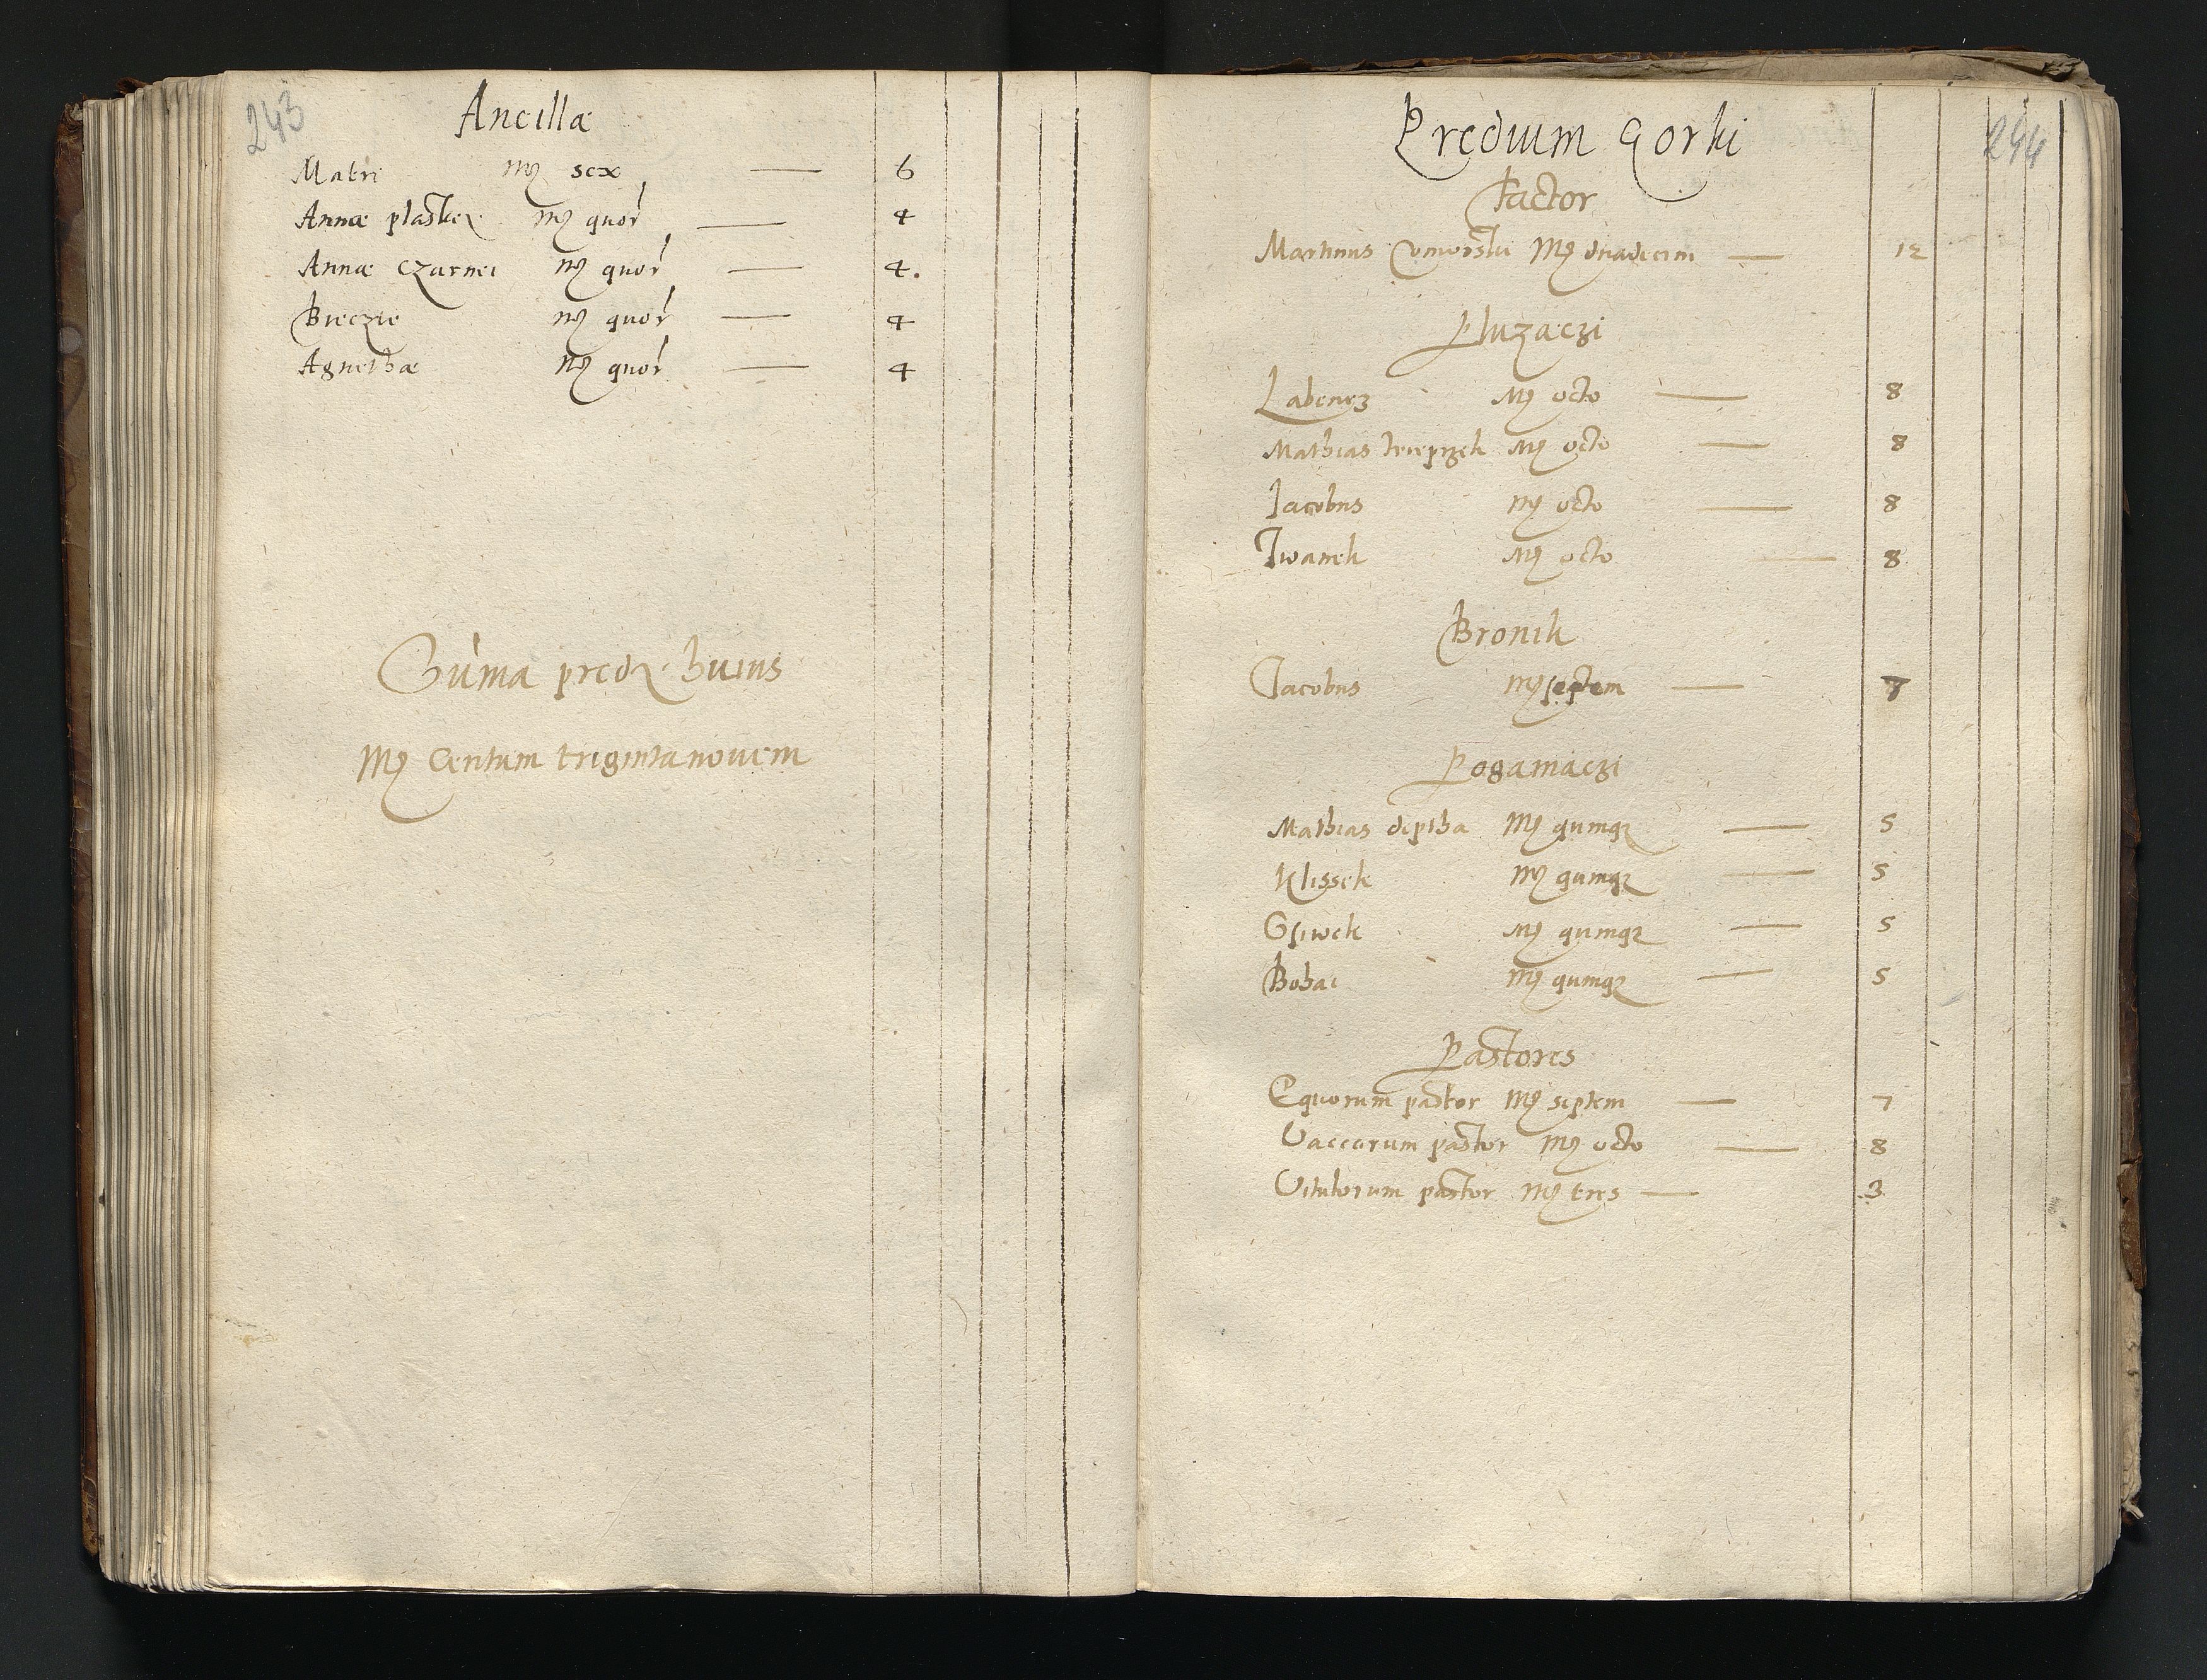 243
Ancillæ
Matri my sex — 6
Annæ plaskee my quor — 4
Annæ czarnei my quor — 4.
Bieczie my quor — 4
Agnethæ my quor — 4
Suma predy huius
My Centum triginta novem
244
Predium Gorki
Factor
Martinus Comorski My duadecim — 12
Pluzaczi
Labencz My octo — 8
Mathias My octo — 8
Iacobus My octo — 8
Iwanek My octo — 8
Bronik
Iacobus My septem — 7
Poganiaczi
Mathias deptha My quinqz — 5
Klissek My quinqz — 5
Gsiwek My quinqz — 5
Bohai My quinqz — 5
Pastores
Equorum pastor My septem — 7
Vaccarum pastor My octo — 8
Vitulorum pastor My tres — 3